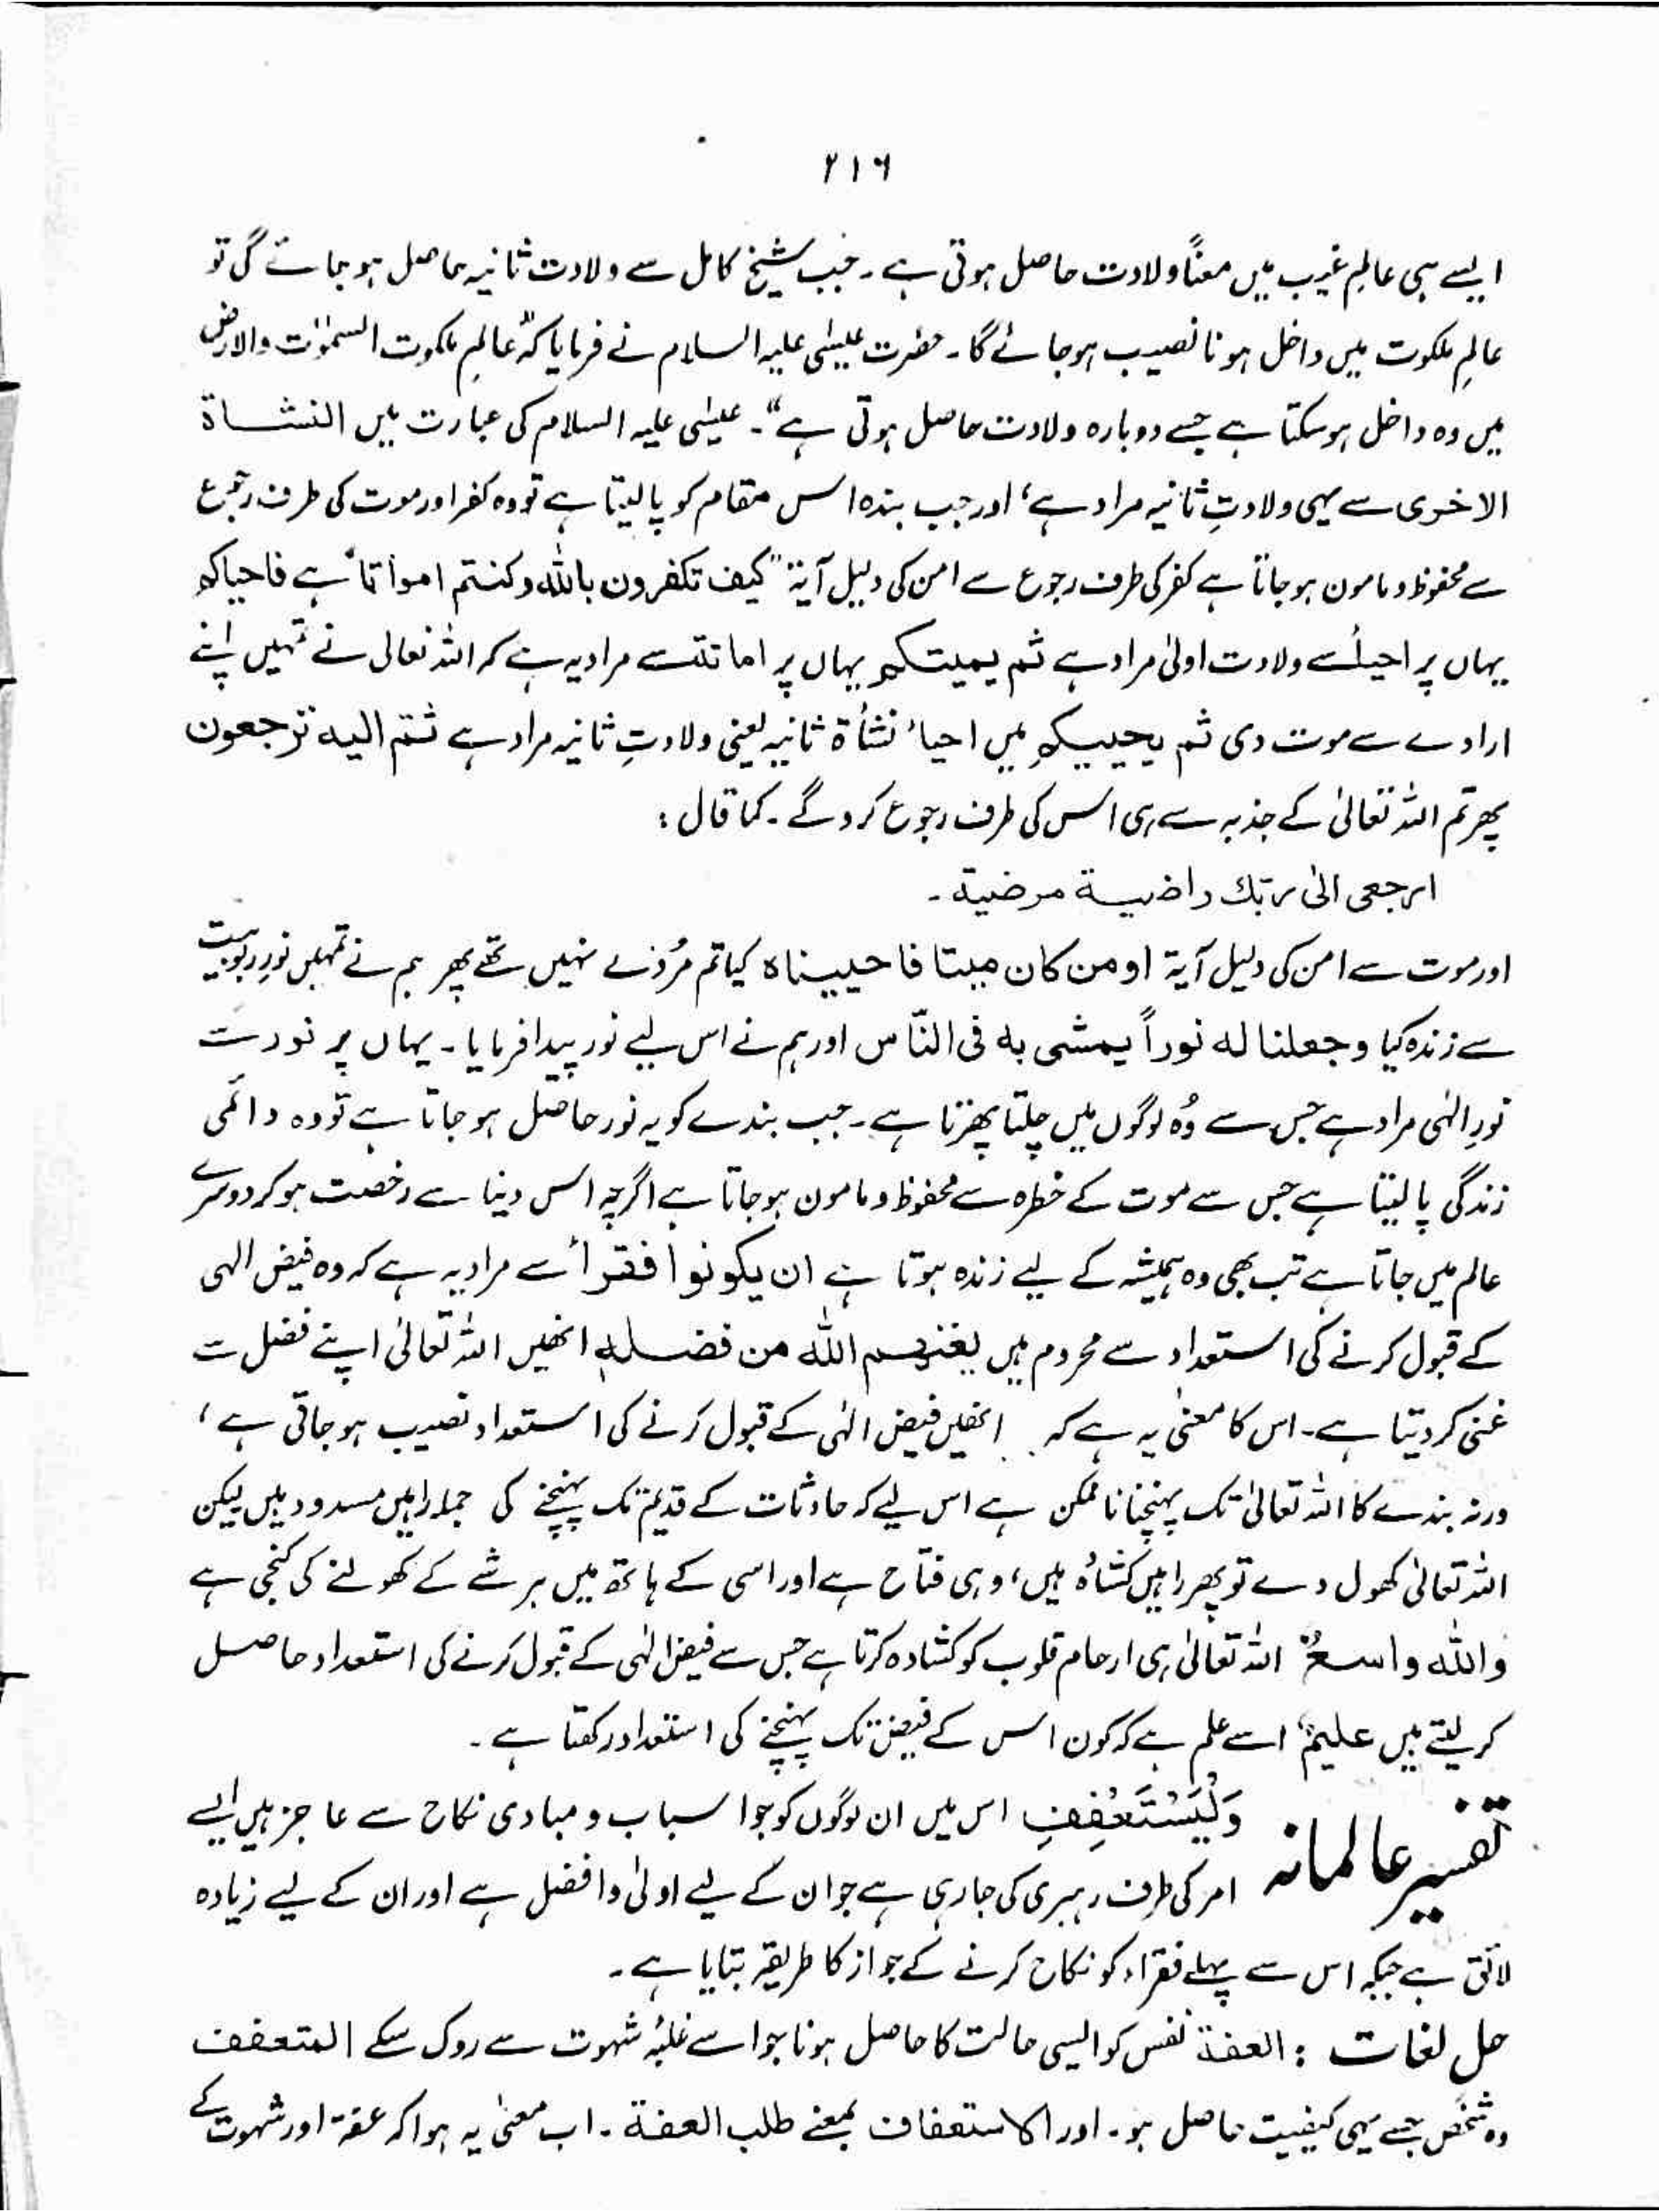 ۲۱۶
ایسے ہی عالمِ غیب میں معنًا ولادت حاصل ہوتی ہے۔ جب شیخ کامل سے ولادت ثانیہ حاصل ہو جائے گی تو
عالمِ ملکوت میں داخل ہونا نصیب ہوجائے گا۔ حضرت عیسٰی علیہ السلام نے فرمایا کہ "عالمِ ملکوت السمٰوٰت والارض
میں وہ داخل ہوسکتا ہے جسے دوبارہ ولادت حاصل ہوتی ہے"۔ عیسٰی علیہ السلام کی عبارت میں النشاۃ
الاخری سے یہی ولادتِ ثانیہ مراد ہے، اور جب بندہ اس مقام کو پا لیتا ہے تو وہ کفر اور موت کی طرف رجوع
سے محفوظ و مامون ہو جاتا ہے کفر کی طرف رجوع سے امن کی دلیل آیۃ "کیف تکفرون باللہ وکنتم امواتا" ہے فاحیاکم
یہاں پر احیأ سے ولادت اولیٰ مراد ہے ثم یمیتکم یہاں پر اماتت سے مراد یہ ہے کہ اللہ تعالی نے تمہیں اپنے
ارادے سے موت دی ثم یحییکم میں احیاء نشأۃ ثانیہ یعنی ولادتِ ثانیہ مراد ہے ثم الیہ ترجعون
پھر تم اللہ تعالیٰ کے جذبہ سے ہی اس کی طرف رجوع کروگے۔ کما قال :
ارجعی الیٰ ربّک راضیۃ مرضیۃ۔
اور موت سے امن کی دلیل آیۃ او من کان میتا فاحییناہ کیا تم مُردے نہیں تھے پھر ہم نے تمہیں نورِ ربوبیت
سے زندہ کیا وجعلنا لہ نوراً یمشی بہ فی النّاس اور ہم نے اس لیے نور پیدا فرمایا۔ یہاں پر نور سے
نورِ الٰہی مراد ہے جس سے وُہ لوگوں میں چلتا پھرتا ہے۔ جب بندے کو یہ نور حاصل ہو جاتا ہے تو وہ دائمی
زندگی پا لیتا ہے جس سے موت کے خطرہ سے محفوظ و مامون ہو جاتا ہے اگرچہ اس دنیا سے رخصت ہو کر دوسرے
عالم میں جاتا ہے تب بھی وہ ہمیشہ کے لیے زندہ ہوتا ہے ان یکونوا فقرأ سے مراد یہ ہے کہ وہ فیض الہی
کے قبول کرنے کی استعداد سے محروم ہیں یغنہم اللہ من فضلہ انھیں اللہ تعالیٰ اپنے فضل سے
غنی کر دیتا ہے۔ اس کا معنیٰ یہ ہے کہ انھیں فیض الٰہی کے قبول کرنے کی استعداد نصیب ہو جاتی ہے ،
ورنہ بندے کا اللہ تعالیٰ تک پہنچنا ناممکن ہے اس لیے کہ حادثات کے قدیم تک پہنچنے کی جملہ راہیں مسدود ہیں لیکن
اللہ تعالیٰ کھول دے تو پھر راہیں کشادُہ ہیں، وہی فتاح ہے اور اسی کے ہاتھ میں ہر شے کے کھولنے کی کنجی ہے
واللہ واسعٌ اللہ تعالیٰ ہی ارحام قلوب کو کشادہ کرتا ہے جس سے فیض الٰہی کے قبول کرنے کی استعداد حاصل
کر لیتے ہیں علیمٌ اسے علم ہے کہ کون اس کے فیض تک پہنچنے کی استعداد رکھتا ہے۔
تفسیر عالمانہ وَلْیَسْتَعْفِفِ اس میں ان لوگوں کو جو اسباب و مبادی نکاح سے عاجز ہیں ایسے
امر کی طرف رہبری کی جارہی ہے جو ان کے لیے اولیٰ و افضل ہے اور ان کے لیے زیادہ
لائق ہے جبکہ اس سے پہلے فقراء کو نکاح کرنے کے جواز کا طریقہ بتایا ہے۔
حل لغات : العفۃ نفس کو ایسی حالت کا حاصل ہونا جو اسے غلبۂ شہوت سے روک سکے المتعفف
وہ شخص جسے یہی کیفیت حاصل ہو۔ اور الاستعفاف بمعنے طلب العفۃ۔ اب معنیٰ یہ ہوا کہ عفۃ اور شہوت کے